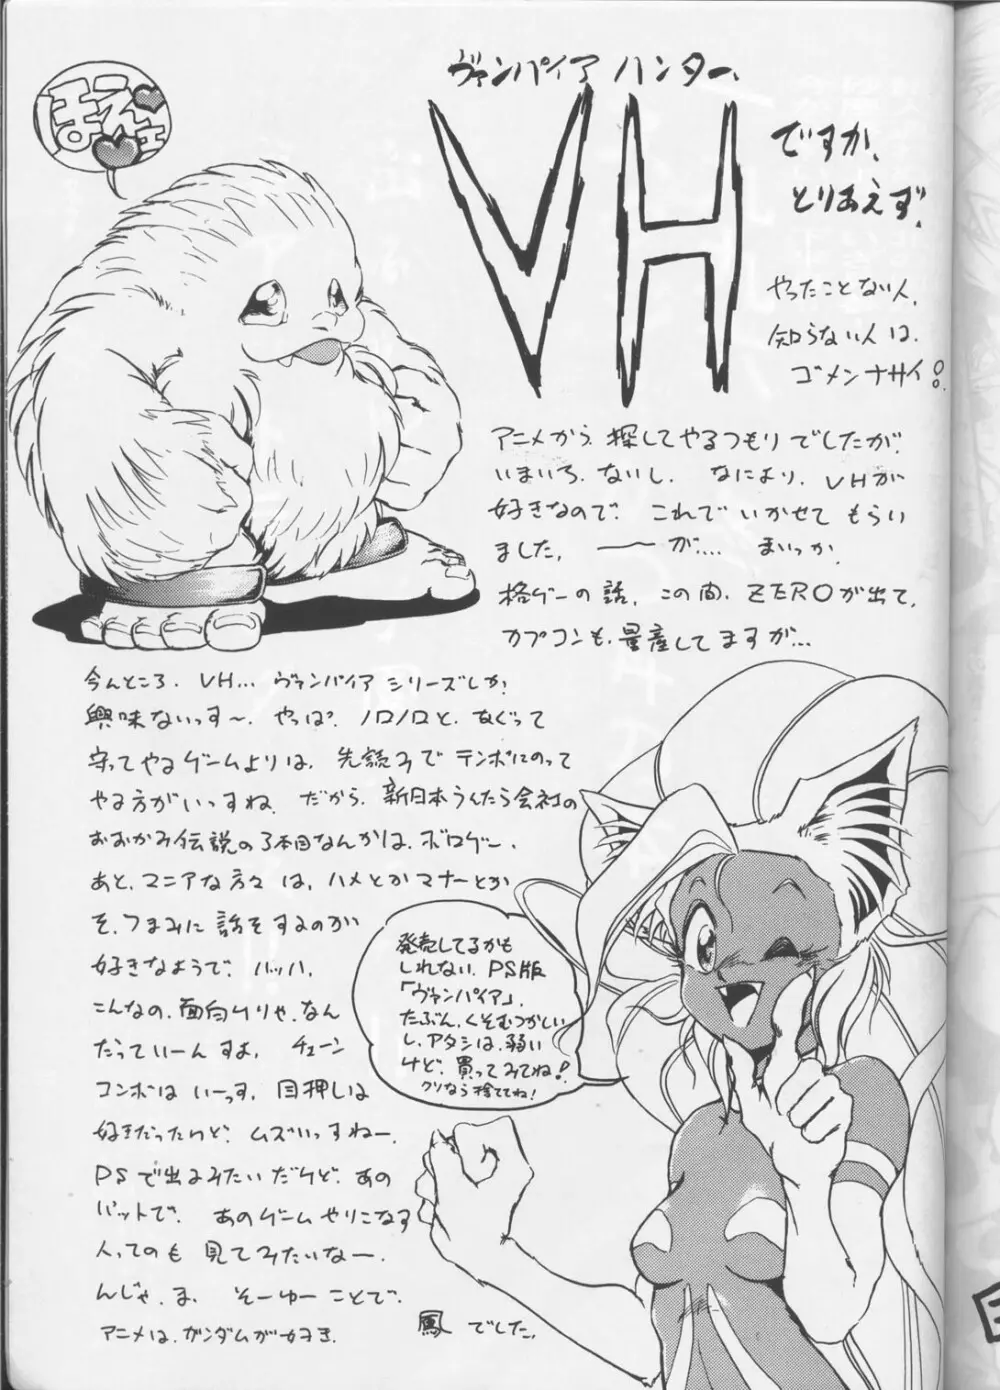 ほえェ
ヴァンパイアハンター、
VH
ですか、
とりあえず、
やったことない人、
知らない人は、
ゴメンナサイ!。
アニメから、探してやるつもりでしたが、
いまいち、ないし、なにより、VHが
好きなので、これでいかせてもらい
ました、――が…、まいっか、
格ゲーの話、この間、ZEROが出て、
カプコンも、量産してますが…
今んところ、VH…ヴァンパイアシリーズしか、
興味ないっす〜、やっぱ、ノロノロと、なぐって
守ってやるゲームよりは、先読みでテンポにのって
やる方がいっすね、だから、新日本うんたら会社の
おおかみ伝説の3本目なんかは、ボロゲー、
あと、マニアな方々は、ハメとかマナーとか
そ、つまみに話をするのが
好きなようで、バッハ、
こんなの、面白けりゃ、なん
だっていーんすよ、チェーン
コンボはいーっす、目押しは
好きだったけど、ムズいっすねー、
PSで出るみたいだけど、あの
パットで、あのゲームやりこなす
人ってのも見てみたいなー、
んじゃ、ま、そーゆーことで、
アニメは、ガンダムが好き、
発売してるかも
しれない、PS版
「ヴァンパイア」、
たぶん、くそむつかしい
し、アタシは、弱い
けど、買ってみてね!
クソなら捨ててね!
鳳でした、